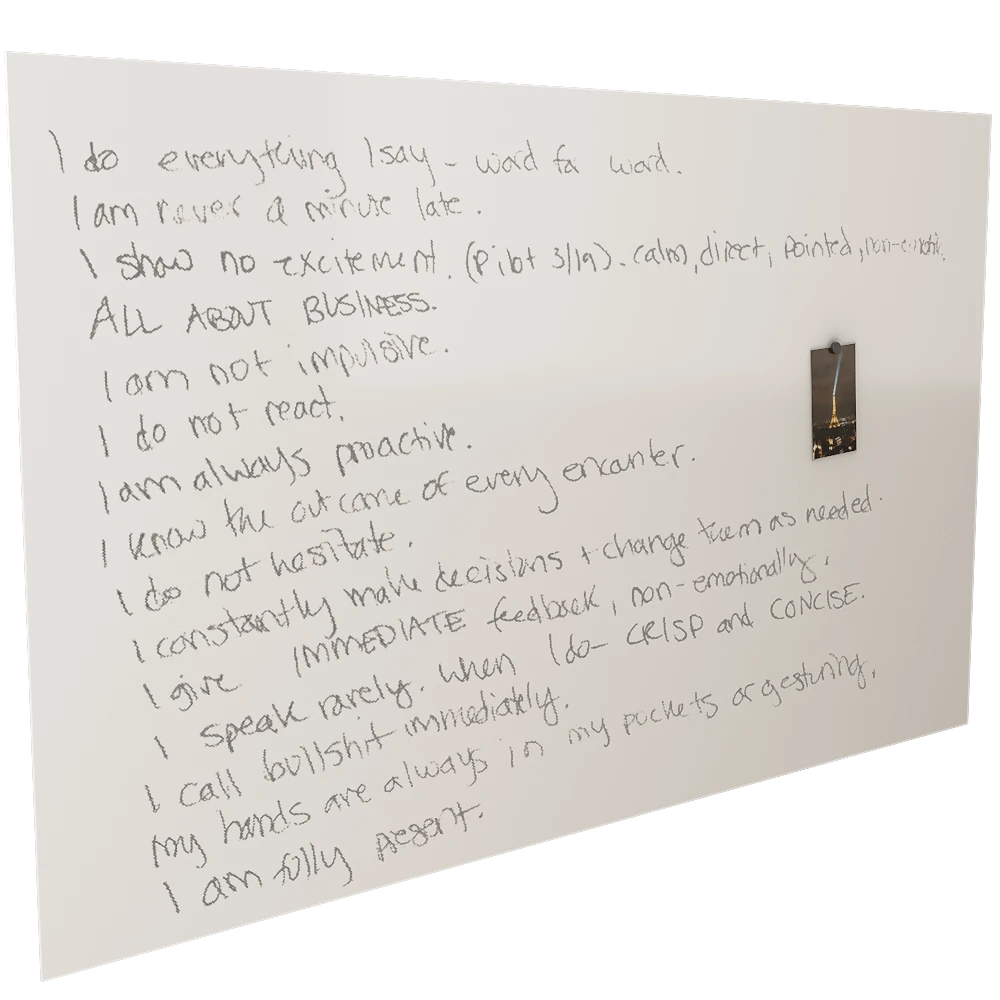 I do everything I say - word for word.
I am never a minute late.
I show no excitement. (Pilot 3/19). calm, direct, pointed, non-emotic.
ALL ABOUT BUSINESS.
I am not impulsive.
I do not react.
I am always proactive.
I know the outcome of every encounter.
I do not hesitate.
I constantly make decisions + change them as needed.
I give IMMEDIATE feedback, non-emotionally.
I speak rarely. When I do - CRISP and CONCISE.
I call bullshit immediately.
My hands are always in my pockets or gesturing.
I am fully present.